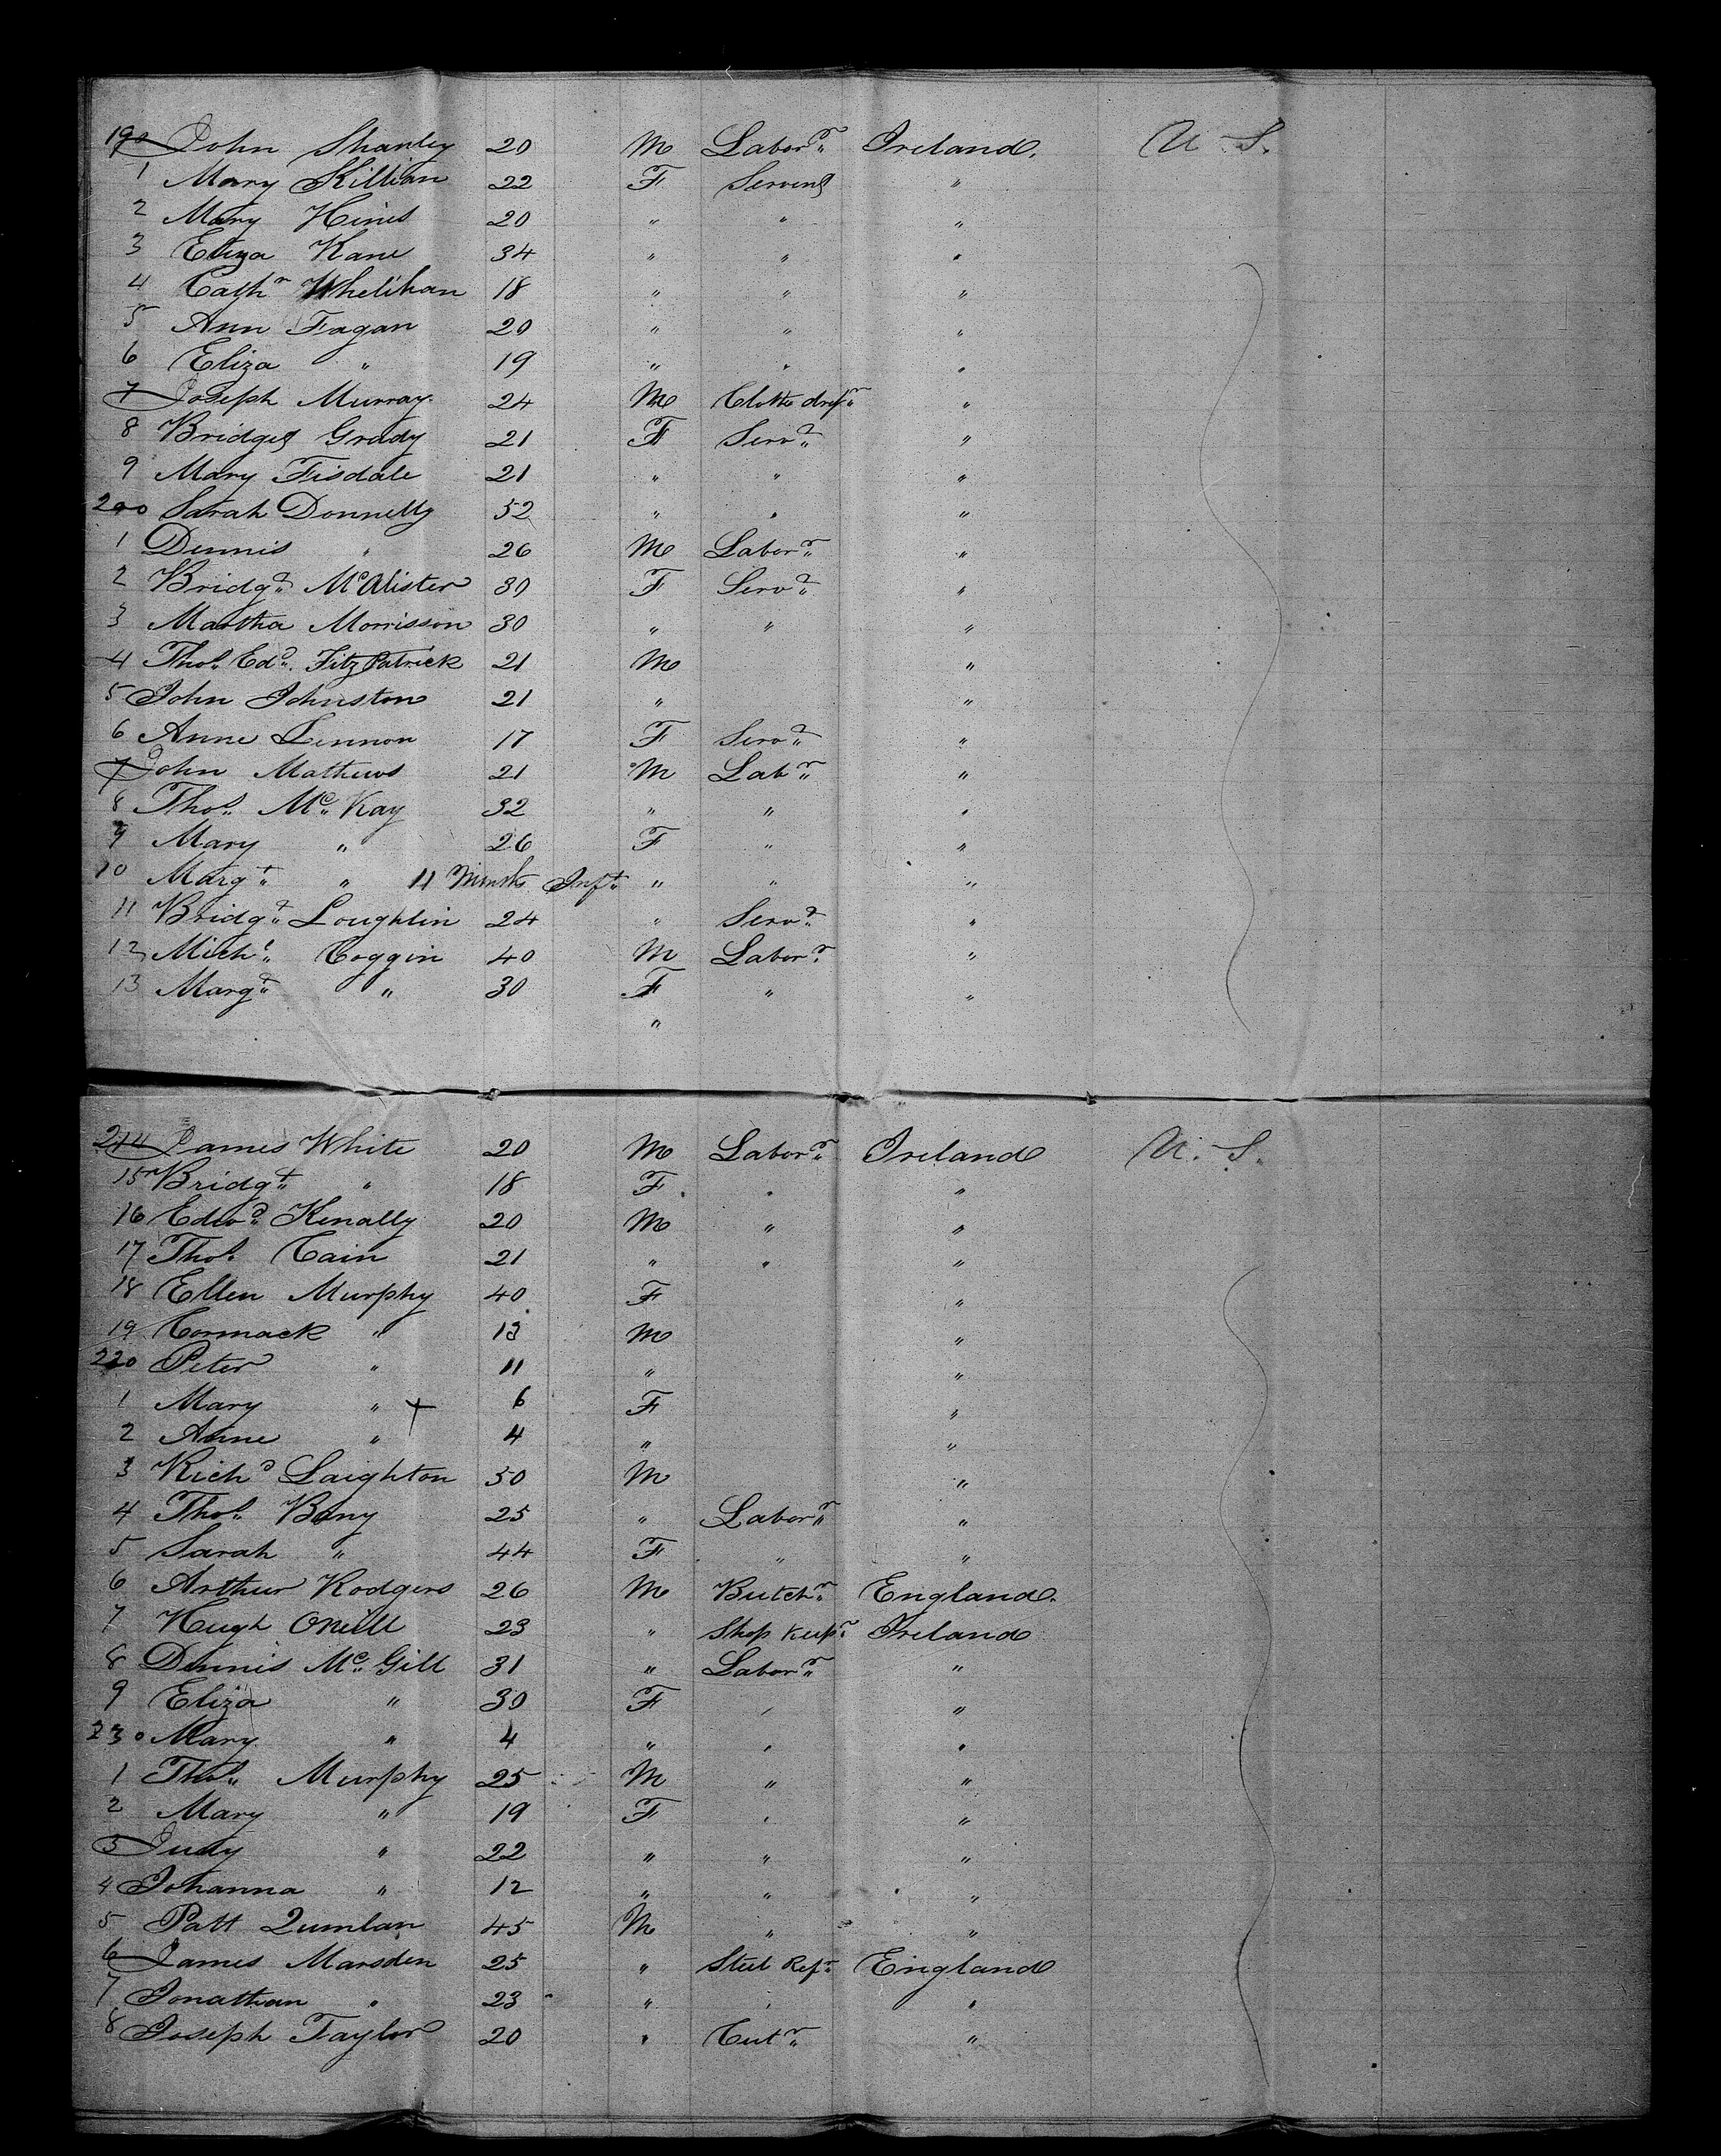 190 John Shanley 20 M Labor.r Ireland. U. S.
1 Mary Killian 22 F Servent "
2 Mary Hines 20 " " "
3 Eliza Kane 34 " " "
4 Cath.n Whelihan 18 " " "
5 Ann Fagan 20 " " "
6 Eliza " 19 " " "
7 Joseph Murray 24 M Cloth drs.r "
8 Bridget Grady 21 F Serv.t "
9 Mary Tisdale 21 " " "
200 Sarah Donnelly 52 " " "
1 Dennis " 26 M Labor.r "
2 Bridg.t McAlister 30 F Serv.t "
3 Martha Morrisson 30 " " "
4 Tho.s Ed.d FitzPatrick 21 M "
5 John Johnston 21 " "
6 Anne Lennon 17 F Serv.t "
7 John Mathews 21 M Lab.r "
8 Tho.s Mc Kay 32 " " "
9 Mary " 26 F " "
10 Marg.t " 11 Minths Inf.t " " "
11 Bridg.t Loughlin 24 " Serv.t "
12 Mich.l Coggin 40 M Labor.r "
13 Marg.t " 30 F " "
"
214 James White 20 M Labor.r Ireland U. S.
15 Bridg.t " 18 F " "
16 Edw.d Kenally 20 M " "
17 Tho.s Cain 21 " " "
18 Ellen Murphy 40 F "
19 Cormack " 13 M "
220 Peter " 11 " "
1 Mary " + 6 F "
2 Anne " 4 " "
3 Rich.d Laighton 50 M "
4 Tho.s Bany 25 " Labor.r "
5 Sarah " 44 F " "
6 Arthur Rodgers 26 M Butch.r England.
7 Hugh ONeill 23 " Shop Keep.r Ireland
8 Dennis Mc Gill 31 " Labor.r "
9 Eliza " 30 F " "
230 Mary " 4 " " "
1 Tho.s Murphy 25 M " "
2 Mary " 19 F " "
3 Judy " 22 " " "
4 Johanna " 12 " " "
5 Patt Qumlan 45 M " "
6 James Marsden 25 " Steel Ref.r England
7 Jonathan " 23 " " "
8 Joseph Taylor 20 " Cut.r "